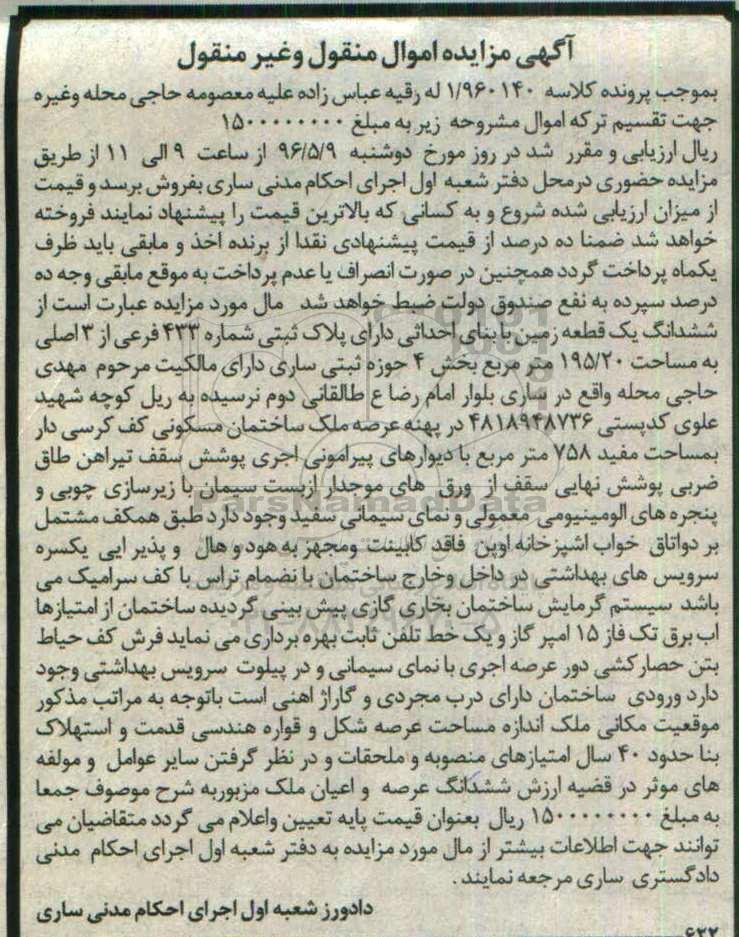 آگهی مزایده اموال منقول وغیر منقول
بموجب پرونده کلاسه ۱/۹۶۰۱۴۰ له رقیه عباس زاده علیه معصومه حاجی محله وغیره
جهت تقسیم ترکه اموال مشروحه زیر به مبلغ ۱۵۰۰۰۰۰۰۰۰
ریال ارزیابی و مقرر شد در روز مورخ دوشنبه ۹۶/۵/۹ از ساعت ۹ الی ۱۱ از طریق
مزایده حضوری درمحل دفتر شعبه اول اجرای احکام مدنی ساری بفروش برسد و قیمت
از میزان ارزیابی شده شروع و به کسانی که بالاترین قیمت را پیشنهاد نمایند فروخته
خواهد شد ضمنا ده درصد از قیمت پیشنهادی نقدا از برنده اخذ و مابقی باید ظرف
یکماه پرداخت گردد همچنین در صورت انصراف یا عدم پرداخت به موقع مابقی وجه ده
درصد سپرده به نفع صندوق دولت ضبط خواهد شد مال مورد مزایده عبارت است از
ششدانگ یک قطعه زمین با بنای احداثی دارای پلاک ثبتی شماره ۴۳۳ فرعی از ۳ اصلی
به مساحت ۱۹۵/۲۰ متر مربع بخش ۴ حوزه ثبتی ساری دارای مالکیت مرحوم مهدی
حاجی محله واقع در ساری بلوار امام رضا ع طالقانی دوم نرسیده به ریل کوچه شهید
علوی کدپستی ۴۸۱۸۹۴۸۷۳۶ در پهنه عرصه ملک ساختمان مسکونی کف کرسی دار
بمساحت مفید ۷۵۸ متر مربع با دیوارهای پیرامونی اجری پوشش سقف تیراهن طاق
ضربی پوشش نهایی سقف از ورق های موجدار ازبست سیمان با زیرسازی چوبی و
پنجره های الومینیومی معمولی و نمای سیمانی سفید وجود دارد طبق همکف مشتمل
بر دواتاق خواب اشپزخانه اوپن فاقد کابینت ومجهز به هود و هال و پذیر ایی یکسره
سرویس های بهداشتی در داخل وخارج ساختمان با نضمام تراس با کف سرامیک می
باشد سیستم گرمایش ساختمان بخاری گازی پیش بینی گردیده ساختمان از امتیازها
اب برق تک فاز ۱۵ امپر گاز و یک خط تلفن ثابت بهره برداری می نماید فرش کف حیاط
بتن حصار کشی دور عرصه اجری با نمای سیمانی و در پیلوت سرویس بهداشتی وجود
دارد ورودی ساختمان دارای درب مجردی و گاراژ اهنی است باتوجه به مراتب مذکور
موقعیت مکانی ملک اندازه مساحت عرصه شکل و قواره هندسی قدمت و استهلاک
بنا حدود ۴۰ سال امتیازهای منصوبه و ملحقات و در نظر گرفتن سایر عوامل و مولفه
های موثر در قضیه ارزش ششدانگ عرصه و اعیان ملک مزبوربه شرح موصوف جمعا
به مبلغ ۱۵۰۰۰۰۰۰۰۰ ریال بعنوان قیمت پایه تعیین واعلام می گردد متقاضیان می
توانند جهت اطلاعات بیشتر از مال مورد مزایده به دفتر شعبه اول اجرای احکام مدنی
دادگستری ساری مرجعه نمایند.
دادورز شعبه اول اجرای احکام مدنی ساری
۶۲۲
ParsNamadData